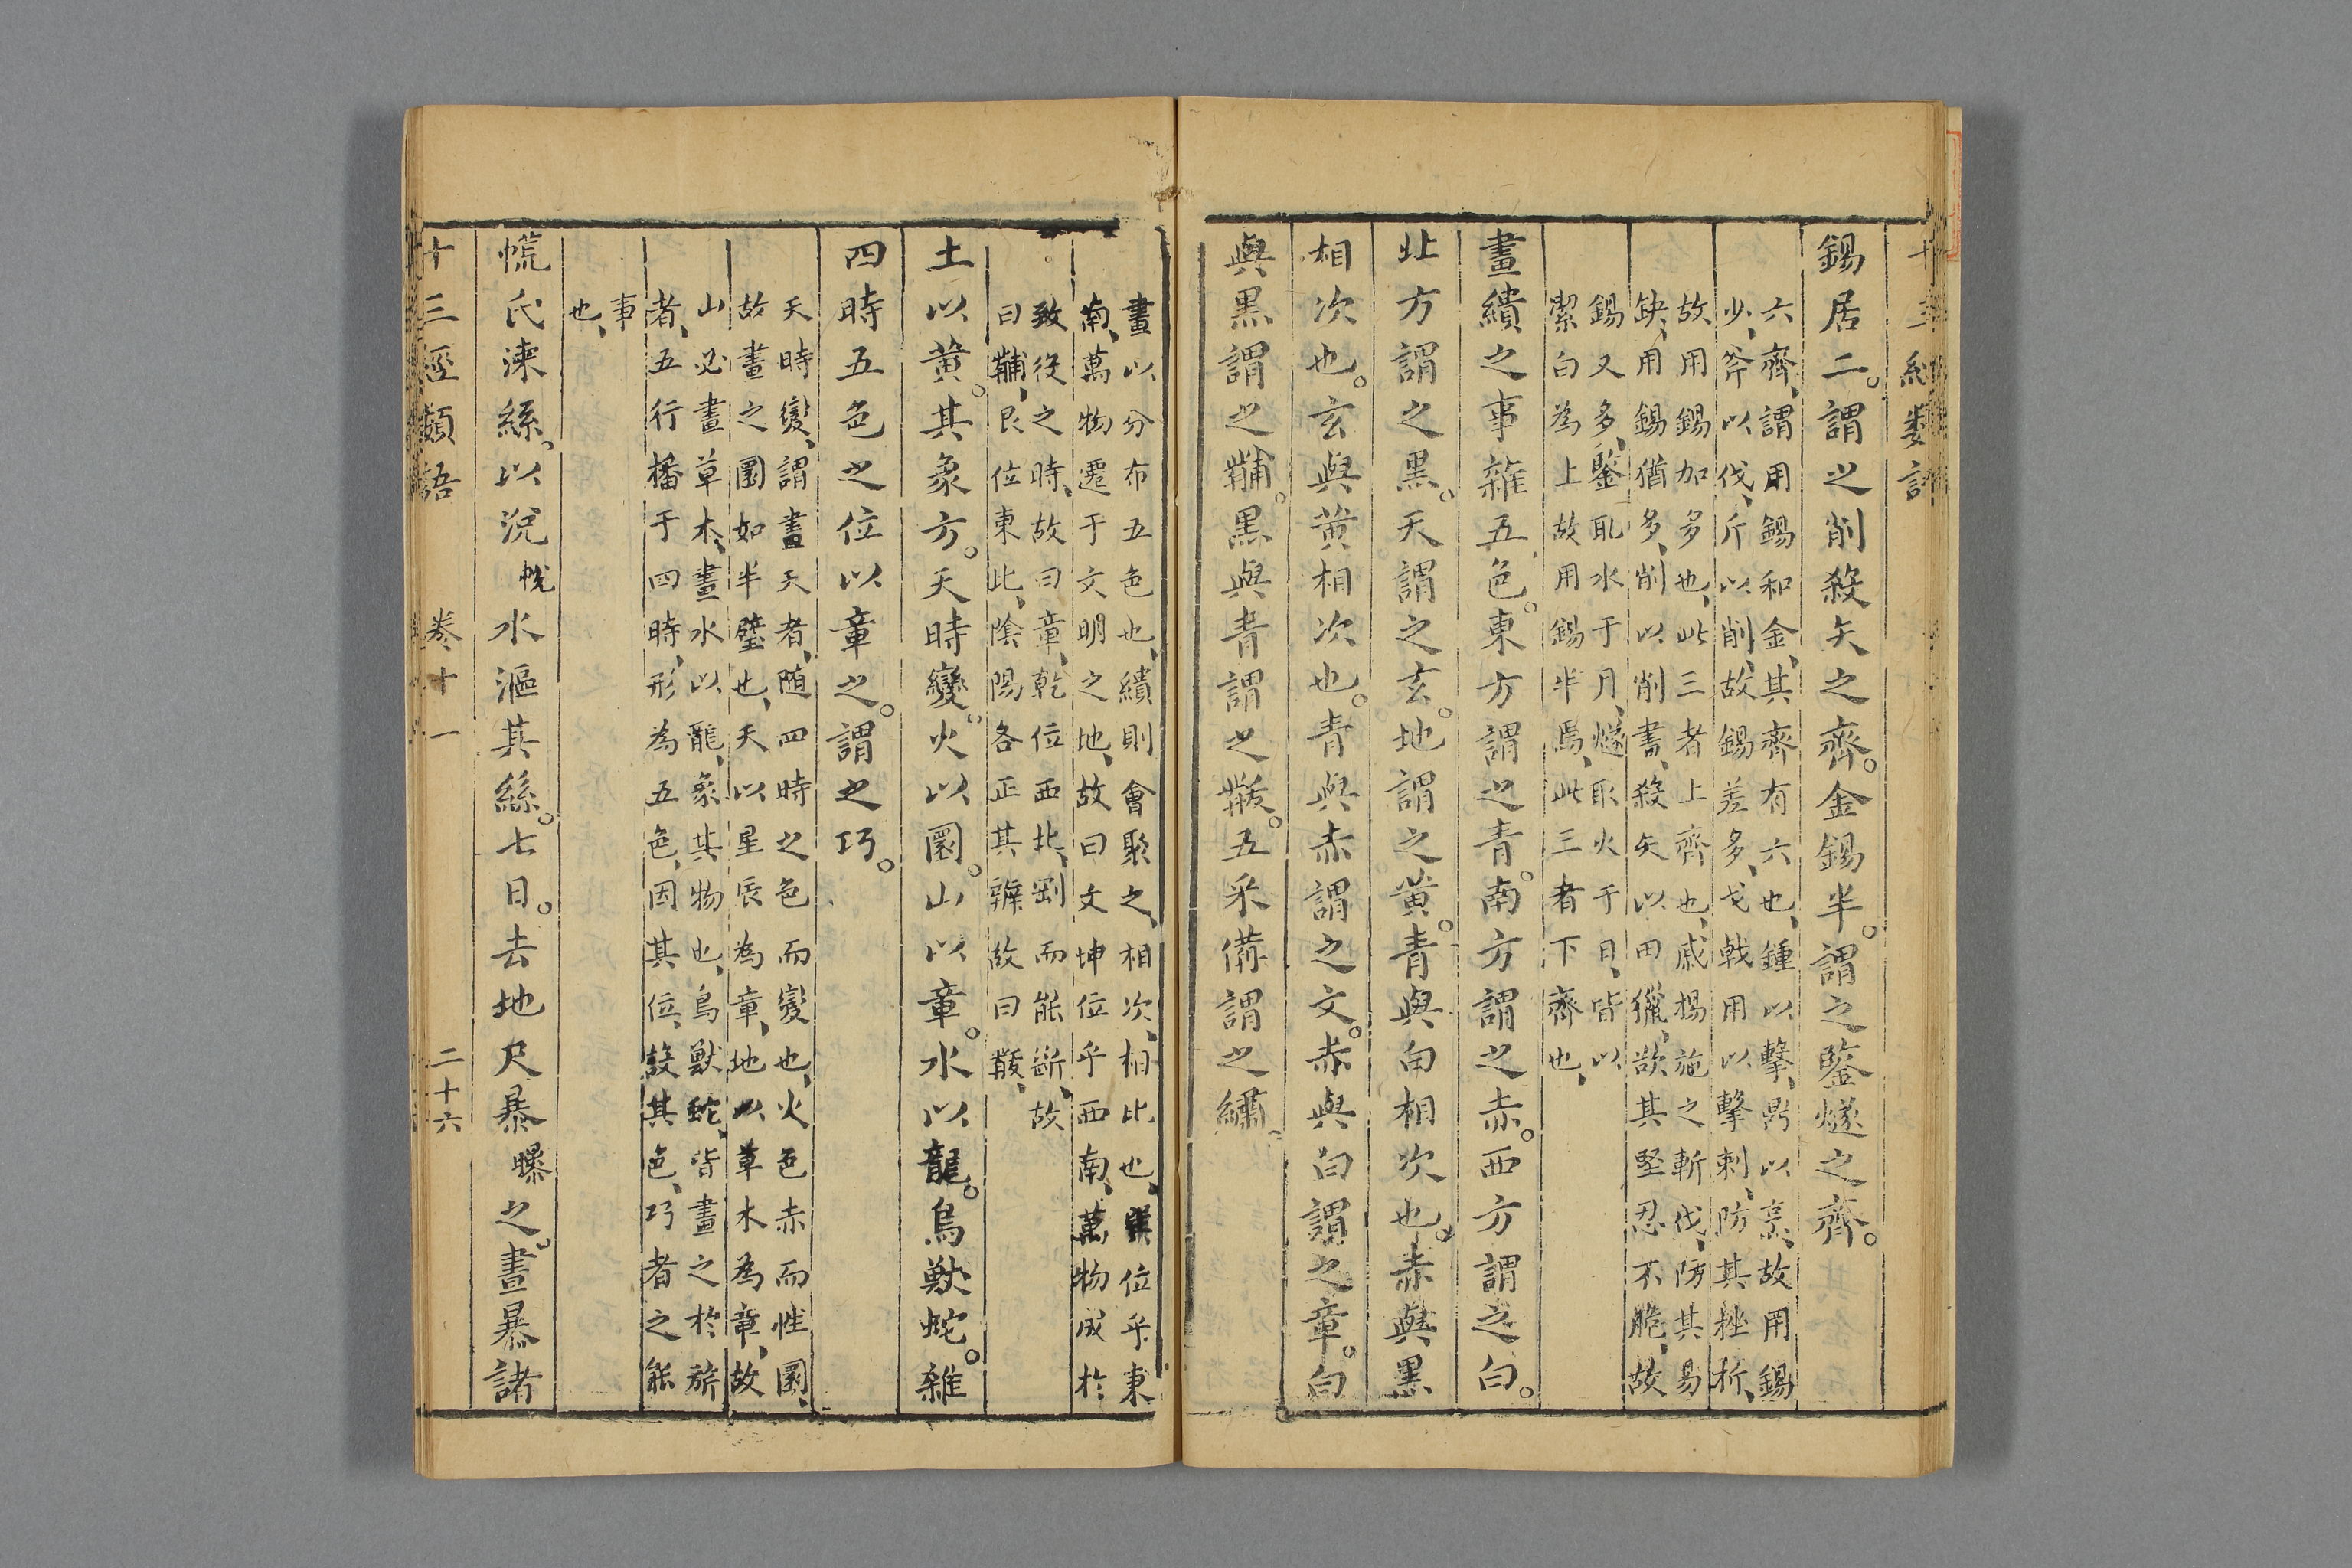 錫居二。謂之削殺矢之齊。金錫半。謂之鑒燧之齊。
六齊、謂用錫和金、其齊有六也、鍾以擊、鼎以烹、故用錫
少、斧以伐、斤以削、故錫差多、戈戟用以擊刺、防其挫折、
故用錫加多也、此三者上齊也、戚揚施之斬伐、防其易
缺、用錫猶多、削以削書、殺矢以田獵、欲其堅忍不脆、故
錫又多、鑒取水于月、燧取火于日、皆以
潔白為上故用錫半焉、此三者下齊也、
畫繢之事雜五色。東方謂之青。南方謂之赤。西方謂之白。
北方謂之黑。天謂之玄。地謂之黃。青與白相次也。赤與黑
相次也。玄與黃相次也。青與赤謂之文。赤與白謂之章。白
與黑謂之黼。黑與青謂之黻。五采備謂之繡。
畫以分布五色也、繢則會聚之、相次、相比也、巽位乎東
南、萬物遷于文明之地、故曰文坤位乎西南、萬物成於
致役之時、故曰章、乾位西北、剛而能斷、故
曰黼、艮位東北、陰陽各正其辨故曰黻、
土以黃。其象方。天時變。火以圜。山以章。水以龍。鳥獸蛇。雜
四時五色之位以章之。謂之巧。
天時變、謂畫天者、随四時之色而變也、火色赤而性圜、
故畫之圜如半璧也、天以星辰為章、地以草木為章、故
山必畫草木、畫水以龍、象其物也、鳥獸蛇、皆畫之於旂
者、五行播于四時、形為五色、因其位、設其色、巧者之能
事
也、
㡛氏湅絲、以涗帨水漚其絲。七日。去地尺暴曝之。晝暴諸
十三經類語 卷十一 二十六